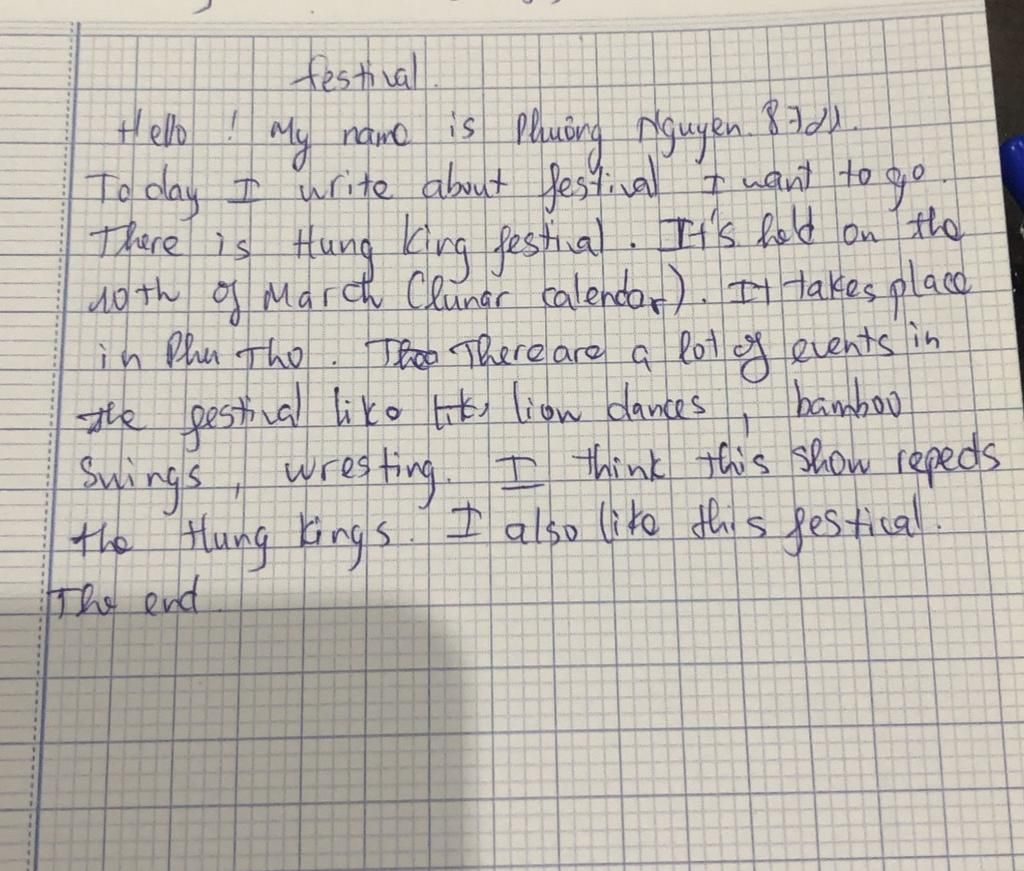 festival.
Hello ! My name is Phương Nguyen.
Today I write about festival I want to go.
There is Hung King festival. It's held on the
10th of March (lunar calendar). It takes place
in Phu Tho. There are a lot of events in
the festival like lion dances, bamboo
Swings, wresting. I think this show repects
the Hung Kings. I also like this festical.
The end.